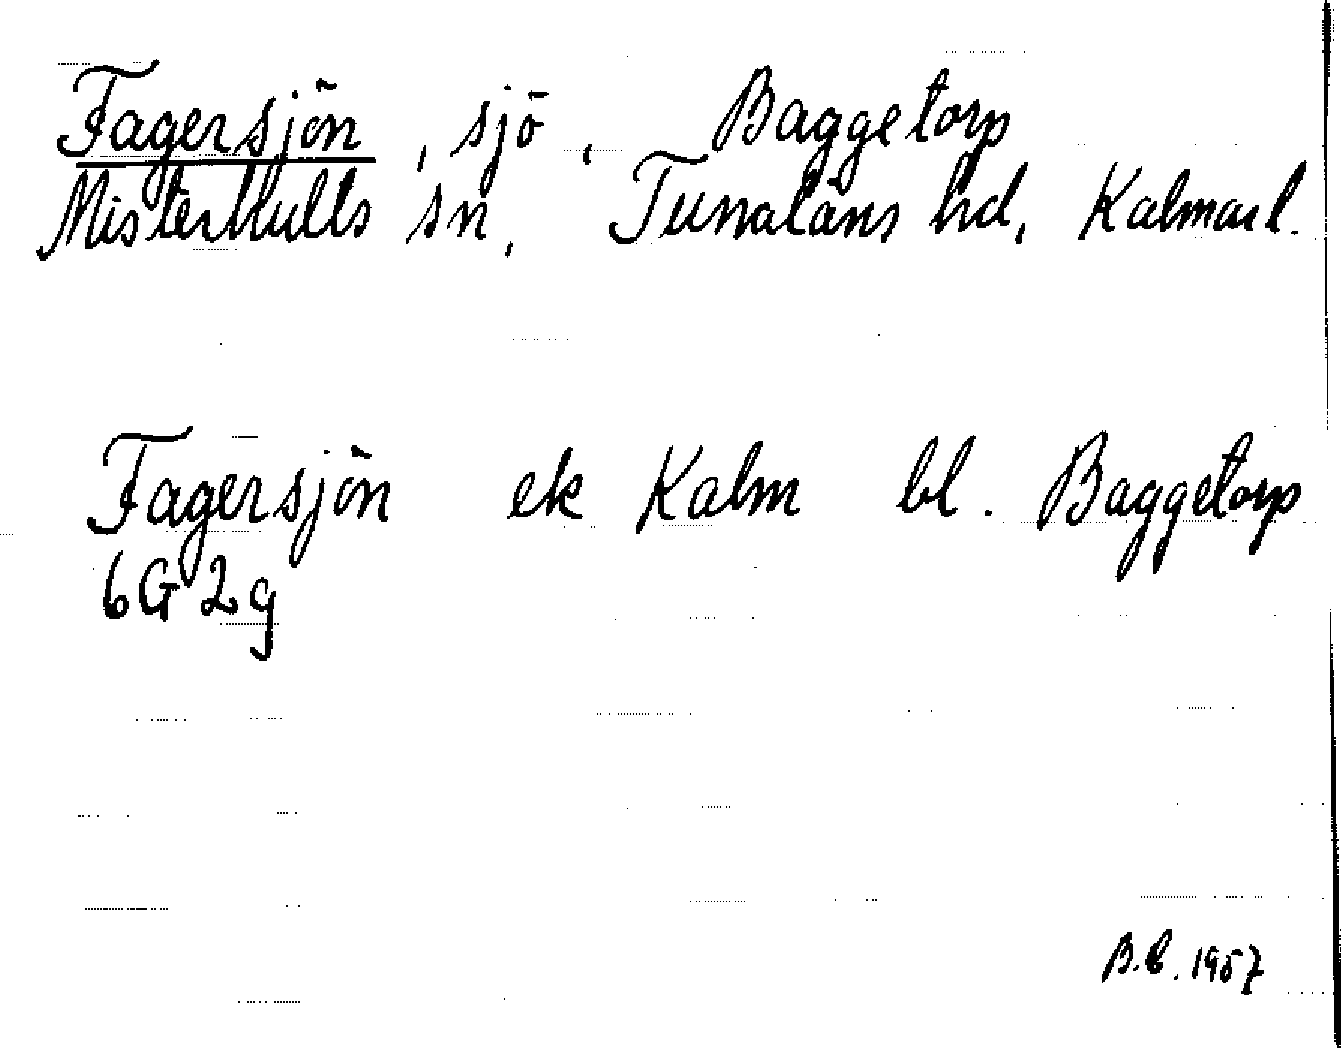 Fagersjön, sjö, Baggetorp
Misterhults sn, Tunaläns hd, Kalmar l.
Fagersjön ek Kalm bl. Baggetorp
6G 2g
B.L. 1957